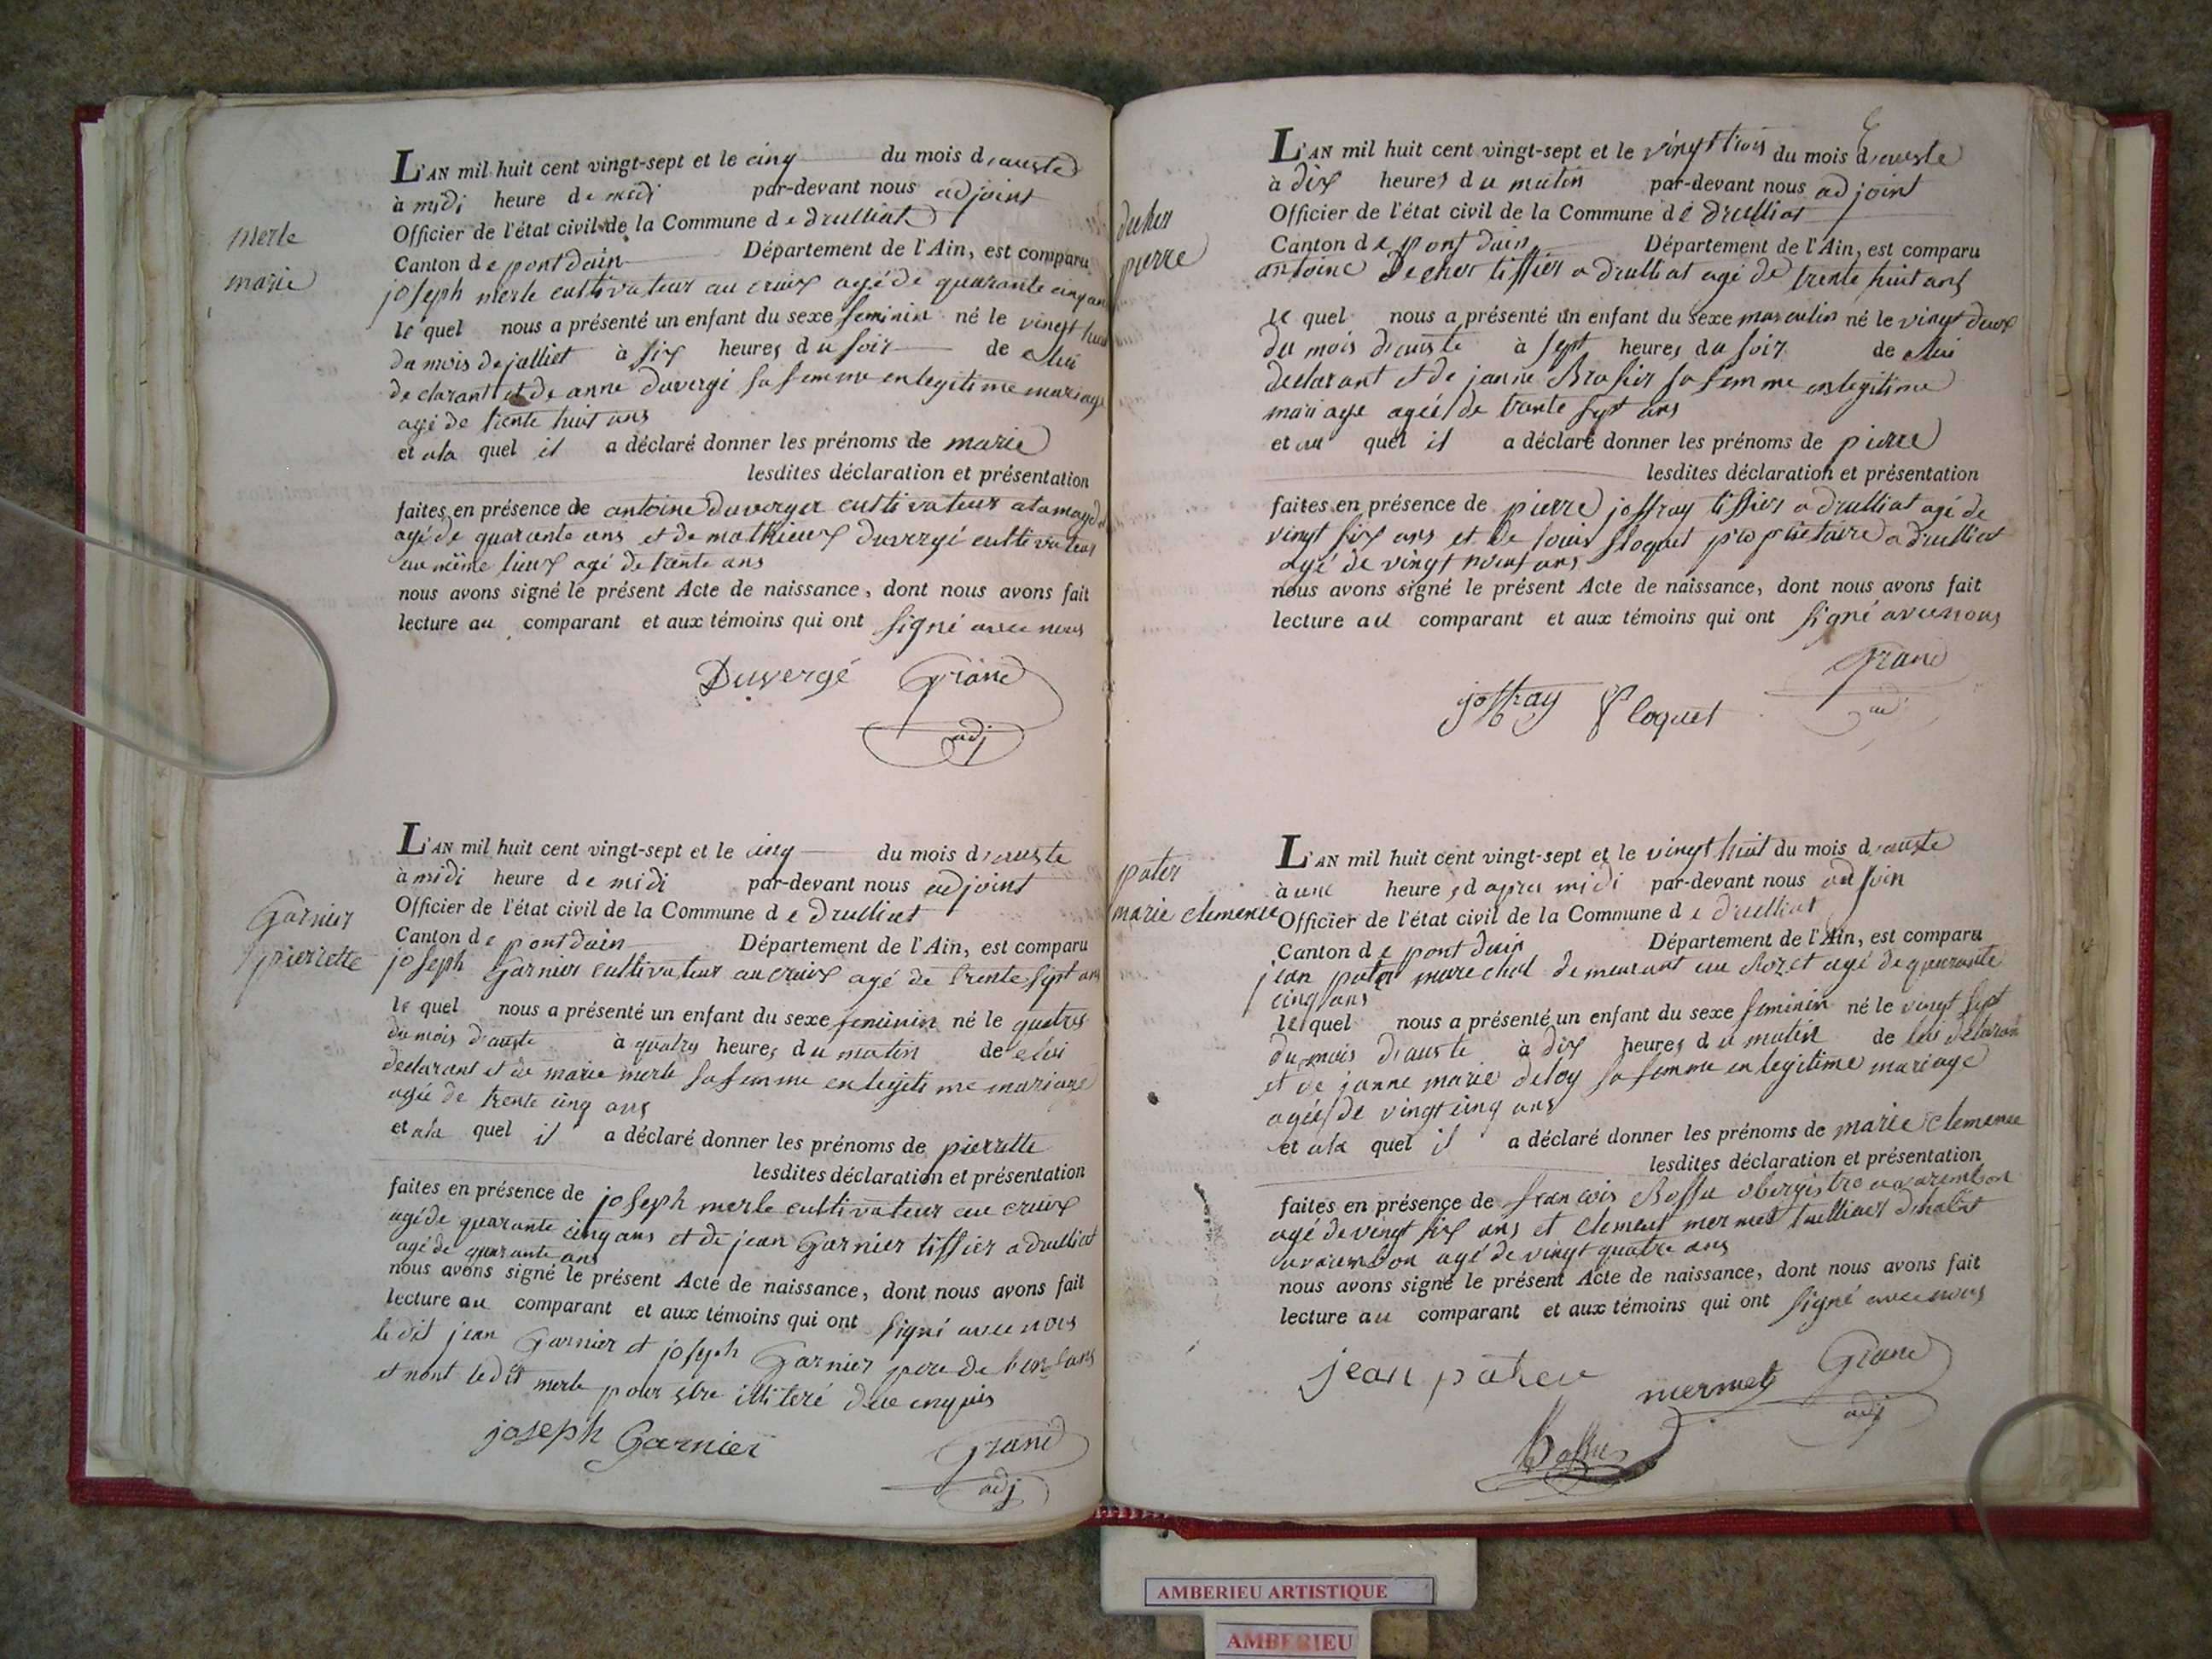 merle
marie
L'AN mil huit cent vingt-sept et le cinq du mois d'auste
à midi heure de midi par-devant nous adjoint
Officier de l'état civil de la Commune de drulliat
Canton de pont dain Département de l'Ain, est comparu
joseph merle cultivateur au cruix agé de quarante cinq ans
le quel nous a présenté un enfant du sexe feminin né le vingt huit
du mois de julliet à six heures du soir de
declarant et de anne duvergé sa femme en legitime mariage
agé de trente huit ans
et ala quel il a déclaré donner les prénoms de marie
lesdites déclaration et présentation
faites en présence de antoine duverger cultivateur
agé de quarante ans et de mathieux duvergé cultivateur
au même lieux agé de trante ans
nous avons signé le présent Acte de naissance, dont nous avons fait
lecture au comparant et aux témoins qui ont signé avec nous
Duvergé Grand
adj
Garnier
pierrette
L'AN mil huit cent vingt-sept et le cinq du mois d'auste
à midi heure de midi par-devant nous adjoint
Officier de l'état civil de la Commune de drulliat
Canton de pont dain Département de l'Ain, est comparu
joseph Garnier cultivateur au cruix agé de trente sept ans
le quel nous a présenté un enfant du sexe feminin né le quatre
du mois d'auste à quatre heures du matin de
declarant et de marie merle sa femme en legitime mariage
agée de trente cinq ans
et ala quel il a déclaré donner les prénoms de pierrette
lesdites déclaration et présentation
faites en présence de joseph merle cultivateur au cruix
agé de quarante cinq ans et de jean Garnier tissier a drulliat
agé de quarante ans
nous avons signé le présent Acte de naissance, dont nous avons fait
lecture au comparant et aux témoins qui ont signé avec nous
le dit jean Garnier et joseph Garnier pere de
et nont ledit merle pour etre illiteré
joseph Garnier Grand
adj
pierre
L'AN mil huit cent vingt-sept et le vingt trois du mois d'auste
à dix heures du matin par-devant nous adjoint
Officier de l'état civil de la Commune de drulliat
Canton de pont dain Département de l'Ain, est comparu
antoine tissier a drulliat agé de trente huit ans
le quel nous a présenté un enfant du sexe masculin né le vingt deux
du mois d'auste à sept heures du soir de
declarant et de janne Brasier sa femme en legitime
mariage agée de trante sept ans
et au quel il a déclaré donner les prénoms de pierre
lesdites déclaration et présentation
faites en présence de pierre joffray tissier a drulliat agé de
vingt six ans et de louis floquet propriétaire a drulliat
agé de vingt neuf ans
nous avons signé le présent Acte de naissance, dont nous avons fait
lecture au comparant et aux témoins qui ont signé avec nous
Grand
joffray floquet
ad
pater
marie clemence
L'AN mil huit cent vingt-sept et le vingt huit du mois d'auste
à une heures d'apres midi par-devant nous
Officier de l'état civil de la Commune de drulliat
Canton de pont dain Département de l'Ain, est comparu
jean pater marechal demeurant au agé de quarante
cinq ans
le quel nous a présenté un enfant du sexe feminin né le vingt sept
du mois d'auste à dix heures du matin de lui
et de janne marie deloy sa femme en legitime mariage
agée de vingt cinq ans
et ala quel il a déclaré donner les prénoms de marie clemence
lesdites déclaration et présentation
faites en présence de francois Bossu
agé de vingt six ans et clement mermet
agé de vingt quatre ans
nous avons signé le présent Acte de naissance, dont nous avons fait
lecture au comparant et aux témoins qui ont signé avec nous
jean pater mermet Grand
adj
Bossu
AMBERIEU ARTISTIQUE
AMBERIEU